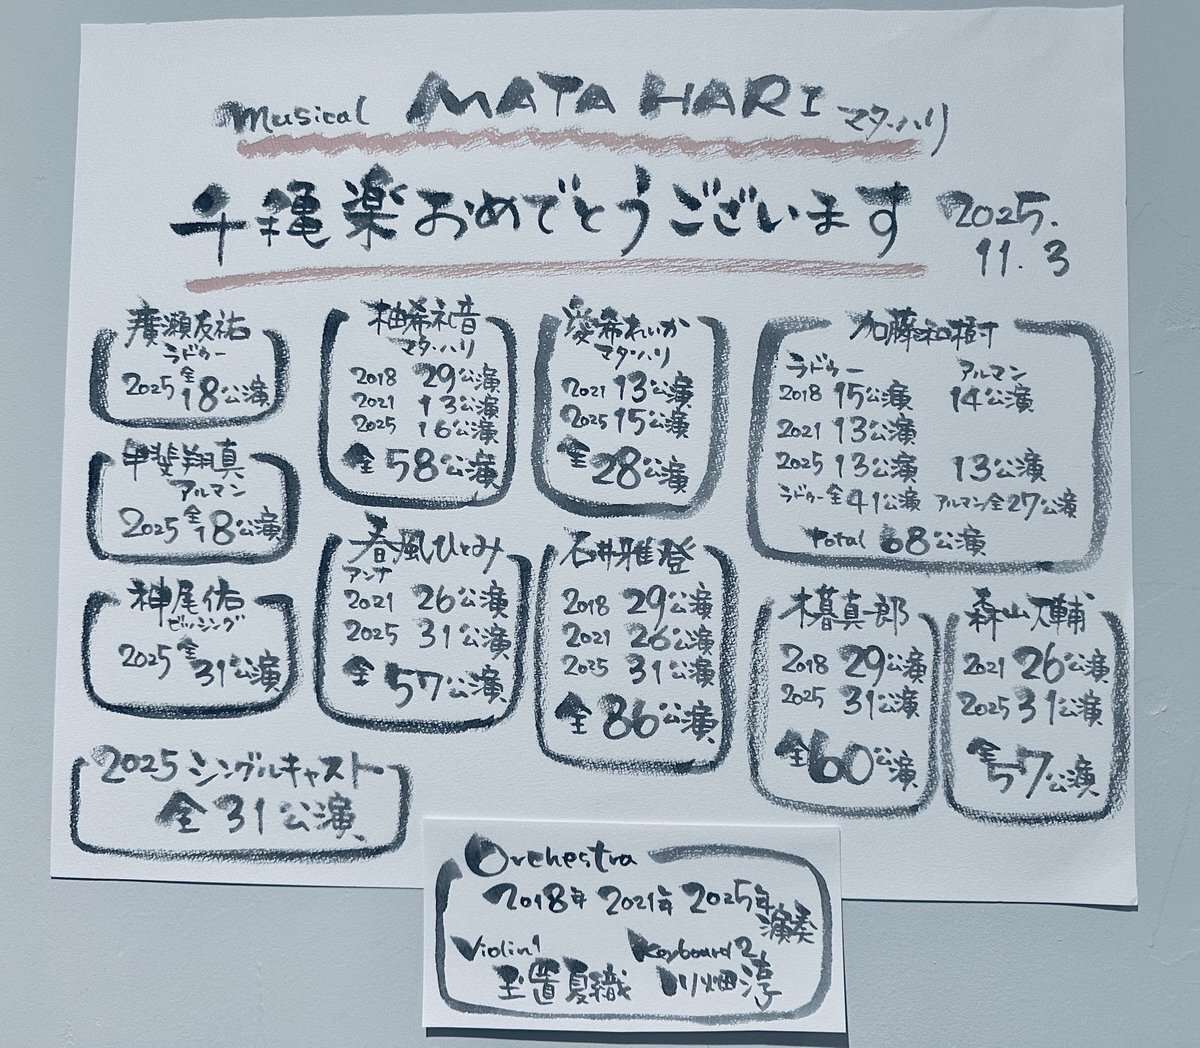 Musical MATA HARI マタ・ハリ
千穐楽おめでとうございます
2025.
11. 3
廣瀬友祐
ラドゥー
2025 全18公演
甲斐翔真
アルマン
2025 全18公演
神尾佑
ピッシング
2025 全31公演
2025 シングルキャスト
全31公演
柚希礼音
マタ・ハリ
2018 29公演
2021 13公演
2025 16公演
全58公演
春風ひとみ
アンナ
2021 26公演
2025 31公演
全57公演
愛希れいか
マタ・ハリ
2021 13公演
2025 15公演
全28公演
石井雅登
2018 29公演
2021 26公演
2025 31公演
全86公演
加藤和樹
ラドゥー アルマン
2018 15公演 14公演
2021 13公演
2025 13公演 13公演
ラドゥー全41公演 アルマン全27公演
Total 68公演
木暮真一郎
2018 29公演
2025 31公演
全60公演
森山大輔
2021 26公演
2025 31公演
全57公演
Orchestra
2018年 2021年 2025年
演奏
Violin1 Keyboard2
玉置夏織 川畑淳